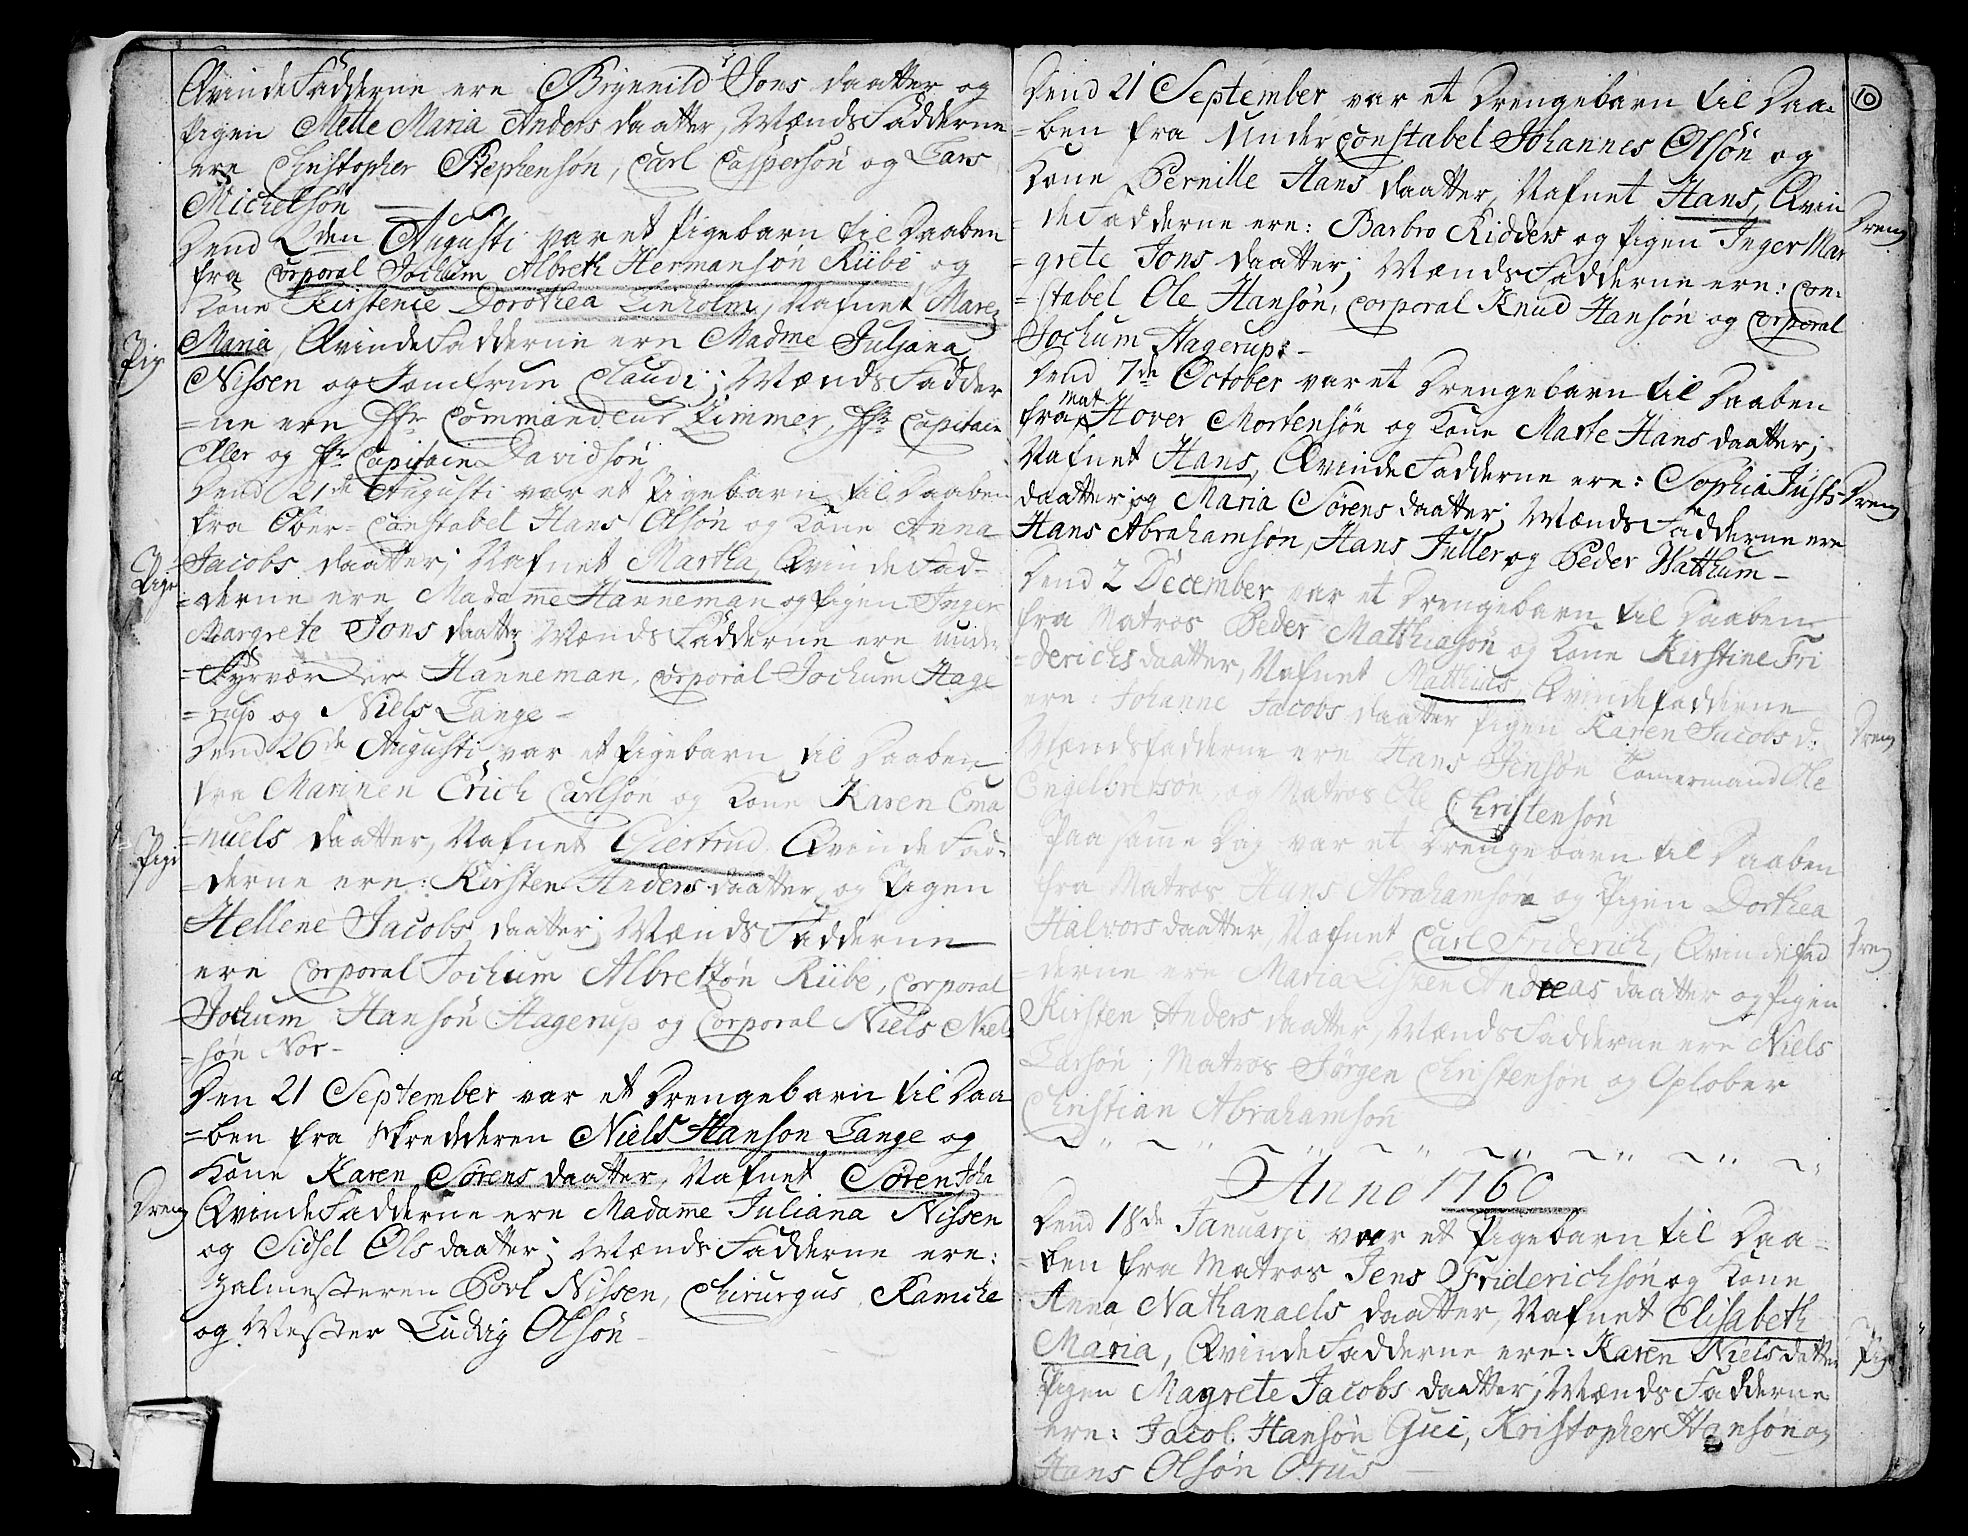 QvindeFadderne ere Brynnild Jons daatter og
Pigen Mette Maria Anders daatter, MændsFadderne
ere Christopher Stephensøn, Carl Caspersøn og Lars
Michelsøn
Dend 2den Augusti var et Pigebarn til Daaben
fra Corporal Jochum Albreth Hermansøn Riibe og
Kone Kirstence Dorothea Linholm, Nafnet Mare
Pige
Maria, QvindeFadderne ere Madme Juljana
Nissen og Jomfrue Claudi; MændsFadder
=ne ere Hr Commandeur Zimmer, Hr Capitain
Eller og Hr Capitain Davidsøn
Dend 21de Augusti var et Pigebarn til Daaben
fra Ober=Constabel Hans Olsøn og Kone Anna
Pige
Jacobs daatter; Nafnet Martha, QvindeFad=
=derne ere Madame Hanneman og Pigen Inger
Margrete Jons daatter, MændsFadderne ere under
=Fyrværker Hanneman, Corporal Jochum Hage
=rup og Niels Lange -
Dend 26de Augusti var et Pigebarn til Daaben
fra Marinen Erich Carlsøn og Kone Karen Ema
Pige
=nuels daatter, Nafnet Giertrud QvindeFad=
=derne ere: Kirsten Anders daatter og Pigen
Hellene Jacobs daatter; MændsFadderne
ere Corporal Jochum Albretzøn Riibe, Corporal
Jochum Hansøn Hagerup og Corporal Niels Niel
=søn Nor-
Den 21 September var et Drengebarn til Daa
=ben fra Skredderen Niels Hanson Lange og
Kone Karen Sørens daatter, Nafnet Søren Joha
Dreng
QvindeFadderne ere Madame Juliana Nissen
og Sidsel Ols daatter; MændsFadderne ere:
Zalmesteren Povl Nissen, Chirurgus Ramche
og Mester Ludvig Olsøn -
10
Dend 21 September var et Drengebarn til Daa=
=ben fra Under Constabel Johannes Olsøn og
Kone Pernille Hans daatter, Nafnet Hans, Qvin
Dreng
=deFadderne ere: Barbro Ridders og Pigen Inger Mar
=grete Jons daatter; MændsFadderne ere: Con=
=stabel Ole Hansøn, Corporal Knud Hansøn og Corporal
Jochum Hagerup: -
Dend 7de October var et Drengebarn til Daaben
fra Mat Hover Mortensøn og Kone Marte Hans daatter;
Nafnet Hans, QvindeFadderne ere: Sophia Justs
Dreng
daatter og Maria Sørens daatter; MændsFadderne ere
Hans Abrahamsøn, Hans Juller og Peder Watthum -
Dend 2 December var et Drengebarn til Daaben
fra Matros Peder Matthiasøn og Kone Kirstine Fri
=derichs daatter, Nafnet Matthias Qvindefadderne
ere: Johanne Jacobs daatter Pigen Karen Jacobs d:
Dreng
Mændsfadderne ere Hans Jensøn Tømermand Ole
Engelbretsøn, og Matros Ole Christensøn
Paa samme Dag var et Drengebarn til Daaben
fra Matros Hans Abrahamsøn og Pigen Dorthea
Halvors daatter Nafnet Carl Friderich, QvindeFad
Dreng
=derne ere Maria Lisken Andreas daatter og Pigen
Kirsten Anders daatter, MændsFadderne ere Niels
Larsøn, Matros Jørgen Christensøn og Oplober
Christian Abrahamsøn
Anno 1760
Dend 18de Januarji var et Pigebarn til Daa=
=ben fra Matros Jens Friderichsøn og Kone
Anna Nathanaels daatter, Nafnet Elisabeth
Pige
Maria, QvindeFadderne ere: Karen Niels datter
Pigen Magrete Jacobs daatter; MændsFadderne
ere: Jacob Hansøn Gui, Kristopher Hansøn og
Hans Olsøn